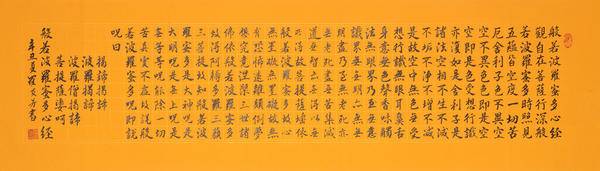 般若波羅蜜多心經
觀自在菩薩行深般
若波羅蜜多時照見
五蘊皆空度一切苦
厄舍利子色不異空
空不異色色即是空
空即是色受想行識
亦復如是舍利子是
諸法空相不生不滅
不垢不淨不增不減
是故空中無色無受
想行識無眼耳鼻舌
身意無色聲香味觸
法無眼界乃至無意
識界無無明亦無無
明盡乃至無老死亦
無老死盡無苦集滅
道無智亦無得以無
所得故菩提薩埵依
般若波羅蜜多故心
無罣礙無罣礙故無
有恐怖遠離顛倒夢
想究竟涅槃三世諸
佛依般若波羅蜜多
故得阿耨多羅三藐
三菩提故知般若波
羅蜜多是大神呪是
大明呪是無上呪是
無等等呪能除一切
苦真實不虛故說般
若波羅蜜多呪即說
呪曰
揭諦揭諦
波羅揭諦
波羅僧揭諦
菩提薩婆呵
般若波羅蜜多心經
辛丑夏羅文芳書